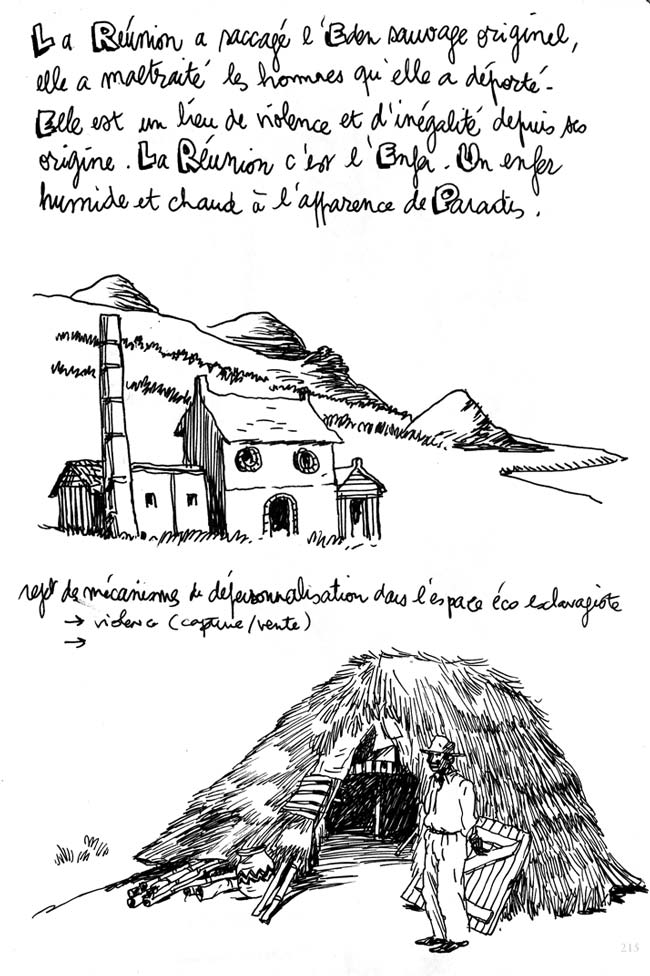 La Réunion a saccagé l'Eden sauvage originel,
elle a maltraité les hommes qu'elle a déporté.
Elle est un lieu de violence et d'inégalité depuis ses
origine. La Réunion c'est l'Enfer. Un enfer
humide et chaud à l'apparence de Paradis.
de mécanismes de dépersonnalisation dans l'espace éco esclavagiste
→ violence (capture/vente)
→
215